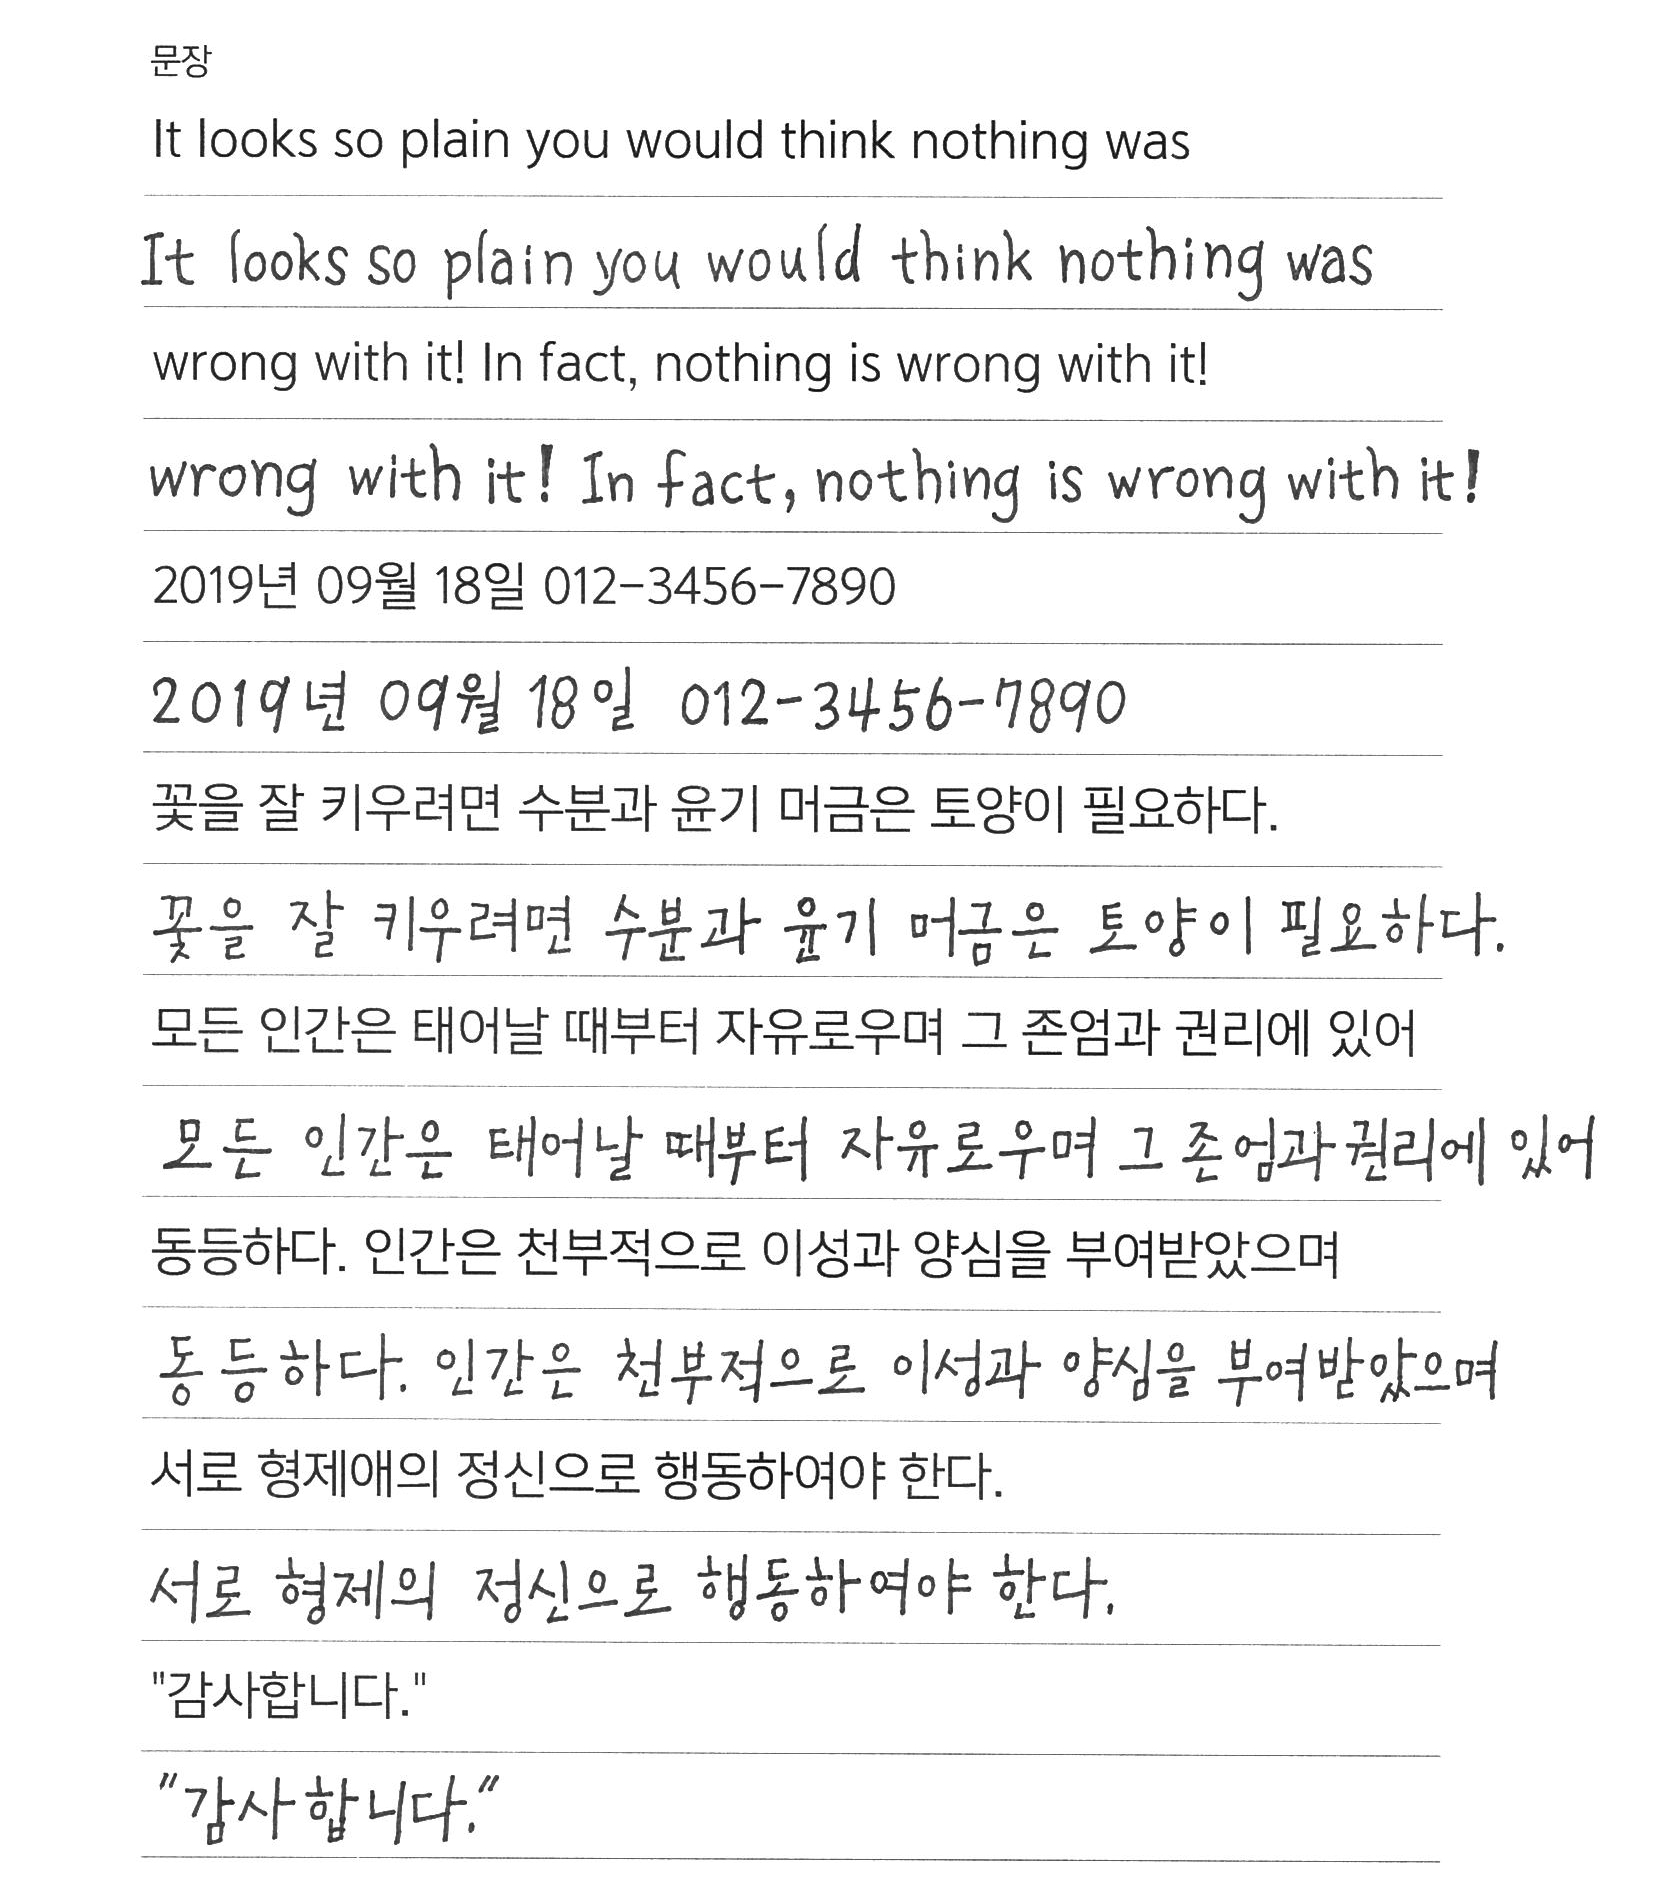 문장
It looks so plain you would think nothing was
It looks so plain you would think nothing was
wrong with it! In fact, nothing is wrong with it!
wrong with it! In fact, nothing is wrong with it!
2019년 09월 18일 012-3456-7890
2019년 09월 18일 012-3456-7890
꽃을 잘 키우려면 수분과 윤기 머금은 토양이 필요하다.
꽃을 잘 키우려면 수분과 윤기 머금은 토양이 필요하다.
모든 인간은 태어날 때부터 자유로우며 그 존엄과 권리에 있어
모든 인간은 태어날 때부터 자유로우며 그 존엄과 권리에 있어
동등하다. 인간은 천부적으로 이성과 양심을 부여받았으며
동등하다. 인간은 천부적으로 이성과 양심을 부여받았으며
서로 형제애의 정신으로 행동하여야 한다.
서로 형제의 정신으로 행동하여야 한다.
"감사합니다."
"감사합니다."